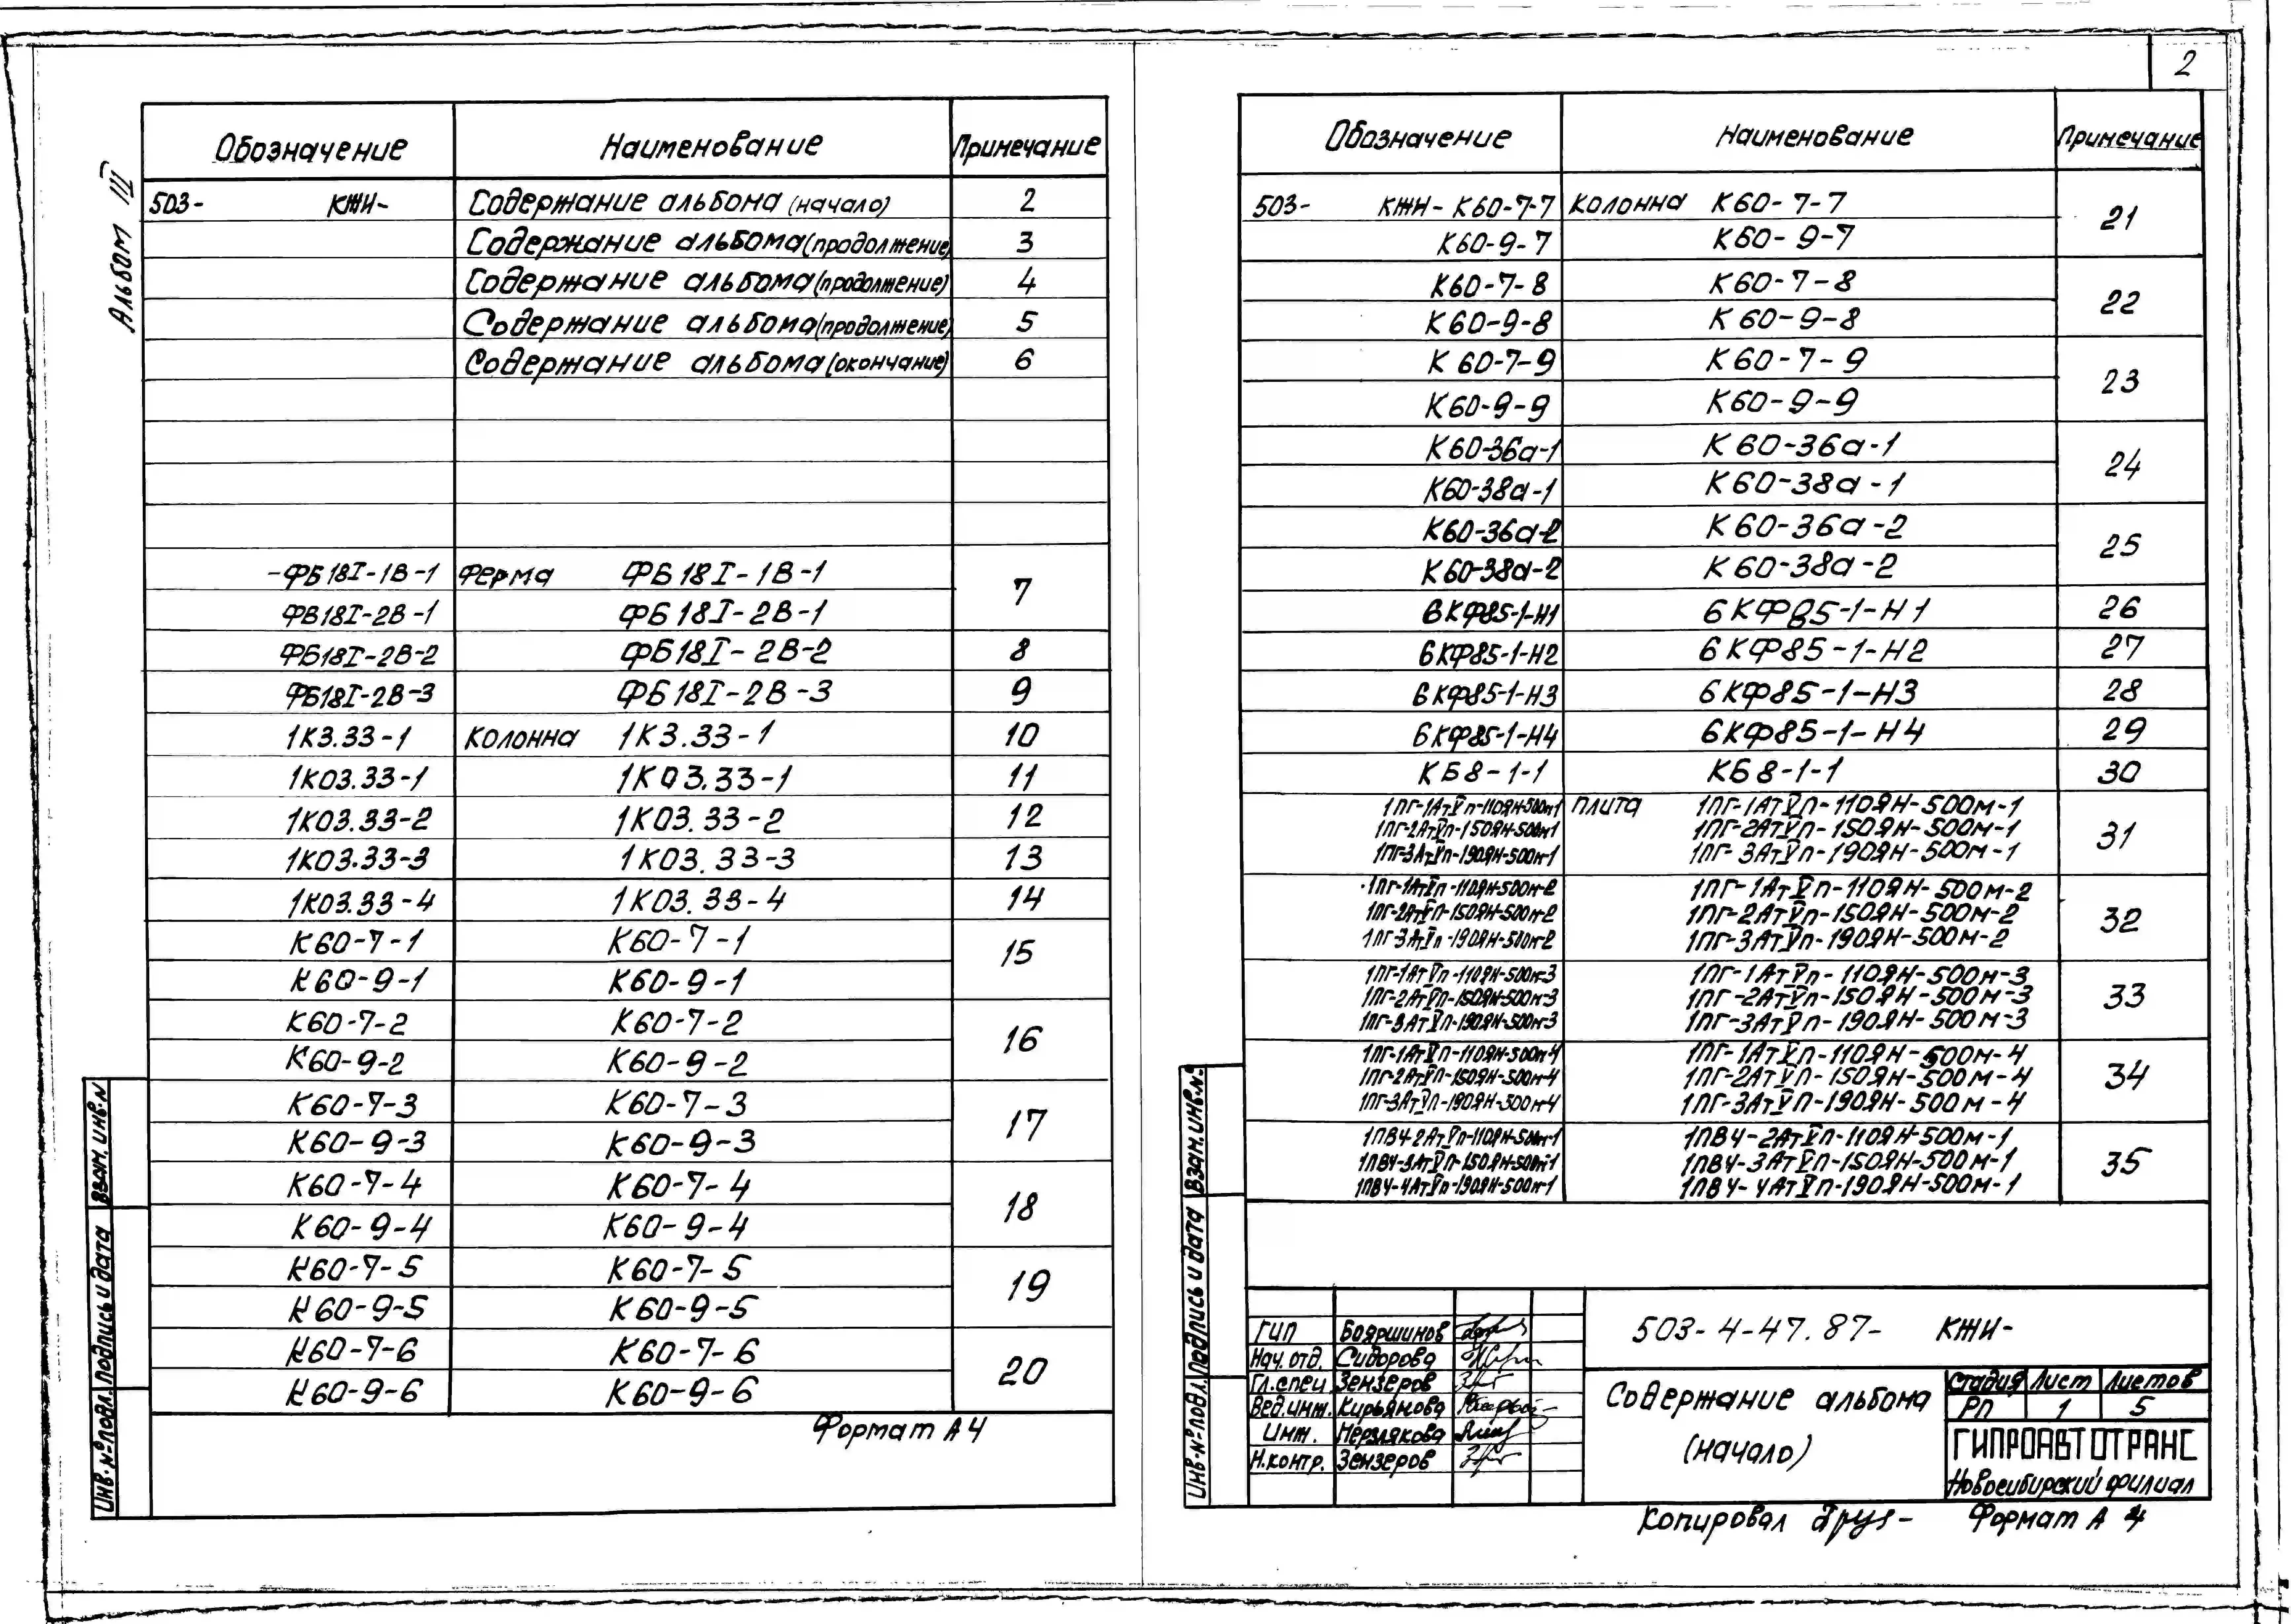 2
Альбом III
Обозначение Наименование Примечание
503- КЖИ- Содержание альбома (начало) 2
Содержание альбома (продолжение) 3
Содержание альбома (продолжение) 4
Содержание альбома (продолжение) 5
Содержание альбома (окончание) 6
-ФБ18I-1В-1 Ферма ФБ18I-1В-1 7
ФВ18I-2В-1 ФБ18I-2В-1
ФБ18I-2В-2 ФБ18I-2В-2 8
ФБ18I-2В-3 ФБ18I-2В-3 9
1К3.33-1 Колонна 1К3.33-1 10
1К03.33-1 1К03.33-1 11
1К03.33-2 1К03.33-2 12
1К03.33-3 1К03.33-3 13
1К03.33-4 1К03.33-4 14
К60-7-1 К60-7-1 15
К60-9-1 К60-9-1
К60-7-2 К60-7-2 16
К60-9-2 К60-9-2
К60-7-3 К60-7-3 17
К60-9-3 К60-9-3
К60-7-4 К60-7-4 18
К60-9-4 К60-9-4
К60-7-5 К60-7-5 19
К60-9-5 К60-9-5
К60-7-6 К60-7-6 20
К60-9-6 К60-9-6
Формат А4
Инв.№подл. Подпись и дата Взам.инв.N
Обозначение Наименование Примечание
503- КЖИ-К60-7-7 Колонна К60-7-7 21
К60-9-7 К60-9-7
К60-7-8 К60-7-8 22
К60-9-8 К60-9-8
К60-7-9 К60-7-9 23
К60-9-9 К60-9-9
К60-36а-1 К60-36а-1 24
К60-38а-1 К60-38а-1
К60-36а-2 К60-36а-2 25
К60-38а-2 К60-38а-2
6КФ85-1-Н1 6КФ85-1-Н1 26
6КФ85-1-Н2 6КФ85-1-Н2 27
6КФ85-1-Н3 6КФ85-1-Н3 28
6КФ85-1-Н4 6КФ85-1-Н4 29
КБ8-1-1 КБ8-1-1 30
1ПГ-1АтVп-110ЯН-500м-1 Плита 1ПГ-1АтVп-110ЯН-500м-1 31
1ПГ-2АтVп-150ЯН-500м-1 1ПГ-2АтVп-150ЯН-500м-1
1ПГ-3АтVп-190ЯН-500м-1 1ПГ-3АтVп-190ЯН-500м-1
1ПГ-1АтVп-110ЯН-500м-2 1ПГ-1АтVп-110ЯН-500м-2 32
1ПГ-2АтVп-150ЯН-500м-2 1ПГ-2АтVп-150ЯН-500м-2
1ПГ-3АтVп-190ЯН-500м-2 1ПГ-3АтVп-190ЯН-500м-2
1ПГ-1АтVп-110ЯН-500м-3 1ПГ-1АтVп-110ЯН-500м-3 33
1ПГ-2АтVп-150ЯН-500м-3 1ПГ-2АтVп-150ЯН-500м-3
1ПГ-3АтVп-190ЯН-500м-3 1ПГ-3АтVп-190ЯН-500м-3
1ПГ-1АтVп-110ЯН-500м-4 1ПГ-1АтVп-110ЯН-500м-4 34
1ПГ-2АтVп-150ЯН-500м-4 1ПГ-2АтVп-150ЯН-500м-4
1ПГ-3АтVп-190ЯН-500м-4 1ПГ-3АтVп-190ЯН-500м-4
1ПВ4-2АтVп-110ЯН-500м-1 1ПВ4-2АтVп-110ЯН-500м-1 35
1ПВ4-3АтVп-150ЯН-500м-1 1ПВ4-3АтVп-150ЯН-500м-1
1ПВ4-4АтVп-190ЯН-500м-1 1ПВ4-4АтVп-190ЯН-500м-1
Инв.№подл. Подпись и дата Взам.инв.№
ГИП Бояршинов
Нач.отд. Сидорова
Гл.спец Зензеров
Вед.инж. Кирьянова
Инж. Мерзлякова
Н.контр. Зензеров
503-4-47.87- КЖИ-
Содержание альбома
(начало)
Стадия Лист Листов
РП 1 5
ГИПРОАВТОТРАНС
Новосибирский филиал
Копировал Формат А4